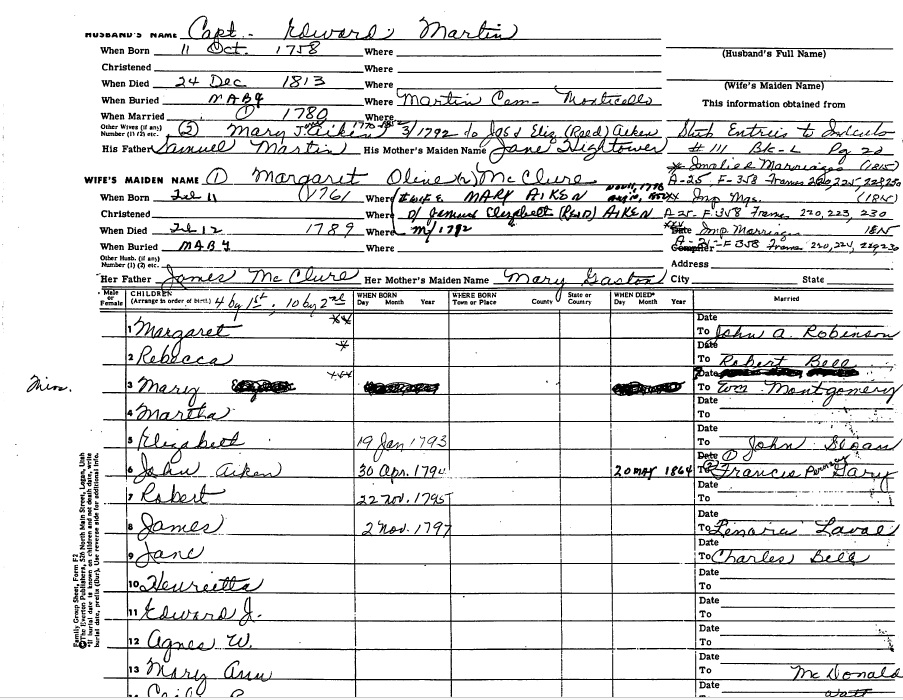 HUSBAND'S NAME Capt. Edward Martin
When Born 11 Oct. 1758 Where
(Husband's Full Name)
Christened Where
When Died 24 Dec 1813 Where
(Wife's Maiden Name)
When Buried MABY Where Martin Cem- Monticello
This information obtained from
When Married ① 1780 Where
Other Wives (if any) Number (1) (2) etc. ② Mary J. Aiken 3/1792 to Jas & Eliz (Reed) Aiken
Stub Entries to Indents
His Father Samuel Martin His Mother's Maiden Name Jane Hightower
# 111 Bk-L Pg 22
WIFE'S MAIDEN NAME ① Margaret Olive McClure
A-25, F-358 Frames
When Born 11 1761 Where MARY AIKEN
Christened Where D/ James Elizabeth (Reed) AIKEN
A-25- F-358 Frames 220, 223, 230
When Died 12 1789 Where M/1792
Date Imp Marriages
When Buried MABY Where
F-358 Frames
Other Husb. (if any) Number (1) (2) etc.
Address
Her Father James McClure Her Mother's Maiden Name Mary Gaston City State
Male or Female CHILDREN (Arrange in order of birth) 4 by 1st; 10 by 2nd WHEN BORN Day Month Year WHERE BORN Town or Place County State or Country WHEN DIED* Day Month Year Married
Date
1 Margaret ** To John A. Robinson
Date
2 Rebecca * To Robert Bell
Date
Miss. 3 Mary *** To Wm Montgomery
Date
4 Martha To
Date
5 Elizabeth 19 Jan 1793 To John Sloan
Date ①
6 John Aiken 30 Apr. 1794 20 MAY 1864 To ② Francis Gary
Date
7 Robert 22 Nov. 1795 To
Date
8 James 2 Nov. 1797 To Laval
Date
9 Jane To Charles Bell
Date
10 Henrietta To
Date
11 Edward J. To
Date
12 Agnes W. To
Date
13 Mary Ann To McDonald
Family Group Sheet, Form F2
©The Everton Publishers, 526 North Main Street, Logan, Utah
*If burial date is known on children and not death date, write
burial date, prefix (Bur). Use reverse side for additional info.